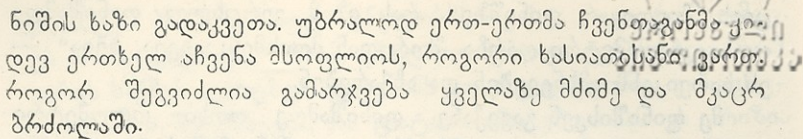 ნიშის ხაზი გადაკვეთა. უბრალოდ ერთ-ერთმა ჩვენთაგანმა კი-
დევ ერთხელ აჩვენა მსოფლიოს, როგორი ხასიათისანი ვართ.
როგორ შეგვიძლია გამარჯვება ყველაზე მძიმე და მკაცრ
ბრძოლაში.